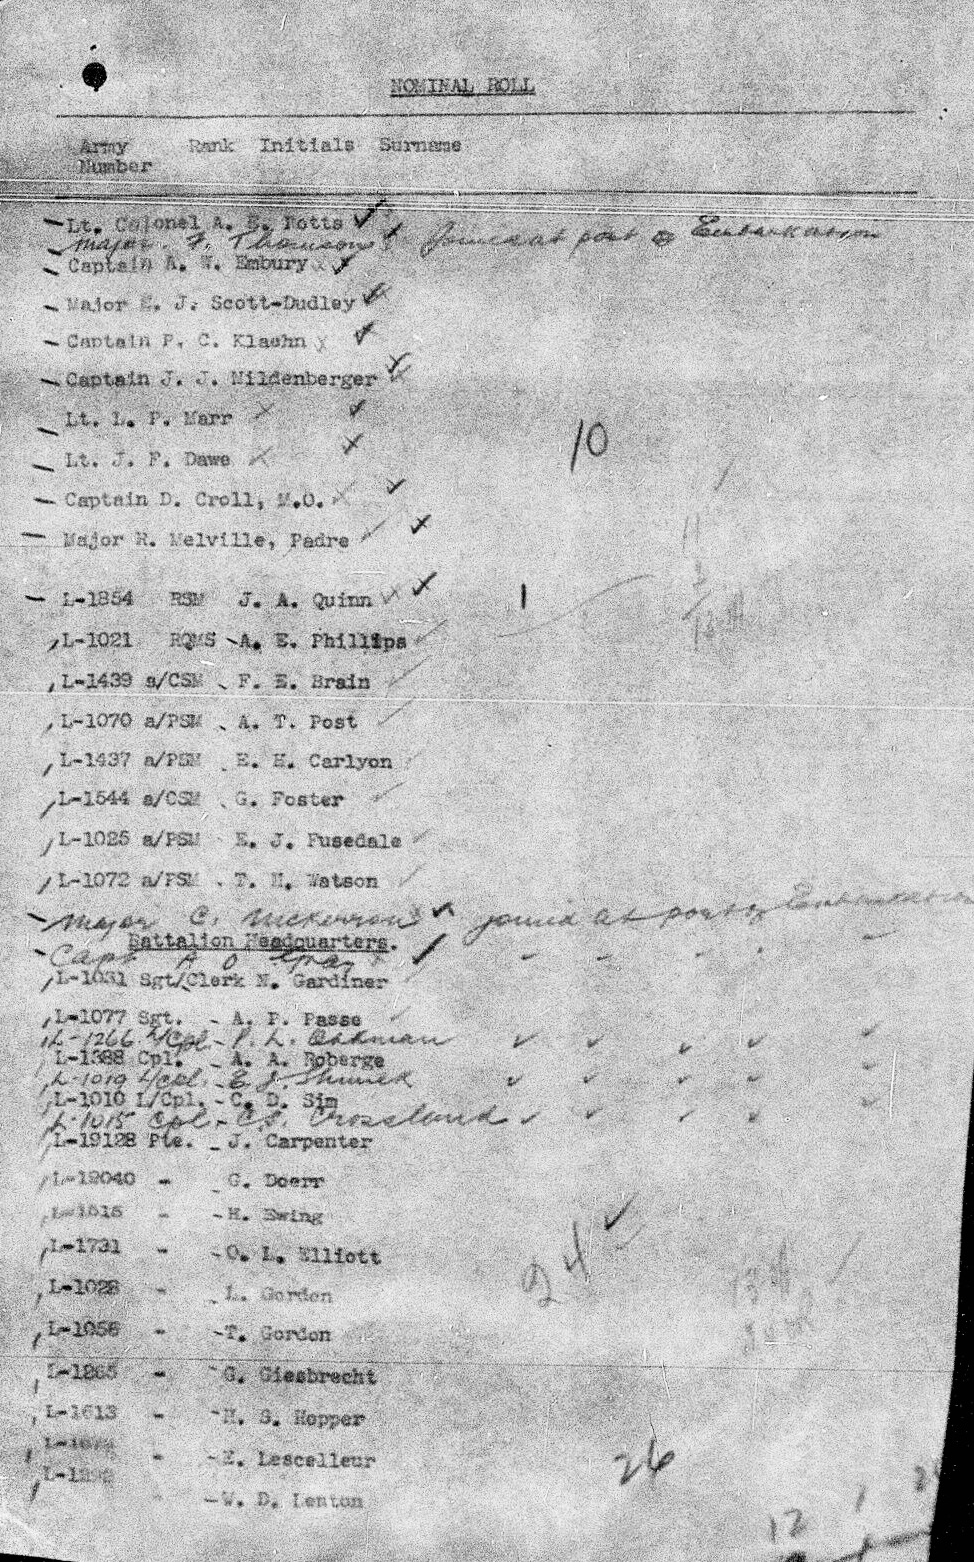 NOMINAL ROLL
Army Rank Initials Surname
Number
Lt. Colonel A. E. Potts
Major F. Thomson Joined at port of Embarkation
Captain A. W. Embury
Major E. J. Scott-Dudley
Captain P. C. Klaehn
Captain J. J. Mildenberger
Lt. L. P. Marr
10
Lt. J. F. Dawe
Captain D. Croll, M.O.
Major R. Melville, Padre
L-1854 RSM J. A. Quinn 1
L-1021 RQMS A. E. Phillips
L-1439 a/CSM F. E. Brain
L-1070 a/PSM A. T. Post
L-1437 a/PSM E. H. Carlyon
L-1544 a/CSM G. Foster
L-1025 a/PSM E. J. Fusedale
L-1072 a/PSM T. M. Watson
Major C. Mickerron joined at port of Embarkation
Battalion Headquarters.
Capt A O Gray
L-1031 Sgt/Clerk N. Gardiner
L-1077 Sgt. - A. P. Passe
L-1266 L/Cpl. - P. L.
L-1388 Cpl. - A. A. Roberge
L-1019 L/Cpl. - E. J.
L-1010 L/Cpl. - C. D. Sim
L-1015 Cpl. - C.S. Crossland
L-19128 Pte. - J. Carpenter
L-12040 - - G. Doerr
L-1515 - - H. Ewing
L-1731 - - O. L. Elliott
24
L-1028 - - L. Gordon
L-1056 - - T. Gordon
L-1265 - - G. Giesbrecht
L-1613 - - H. S. Hopper
- - E. Lescelleur
26
- - W. D. Lenton
12